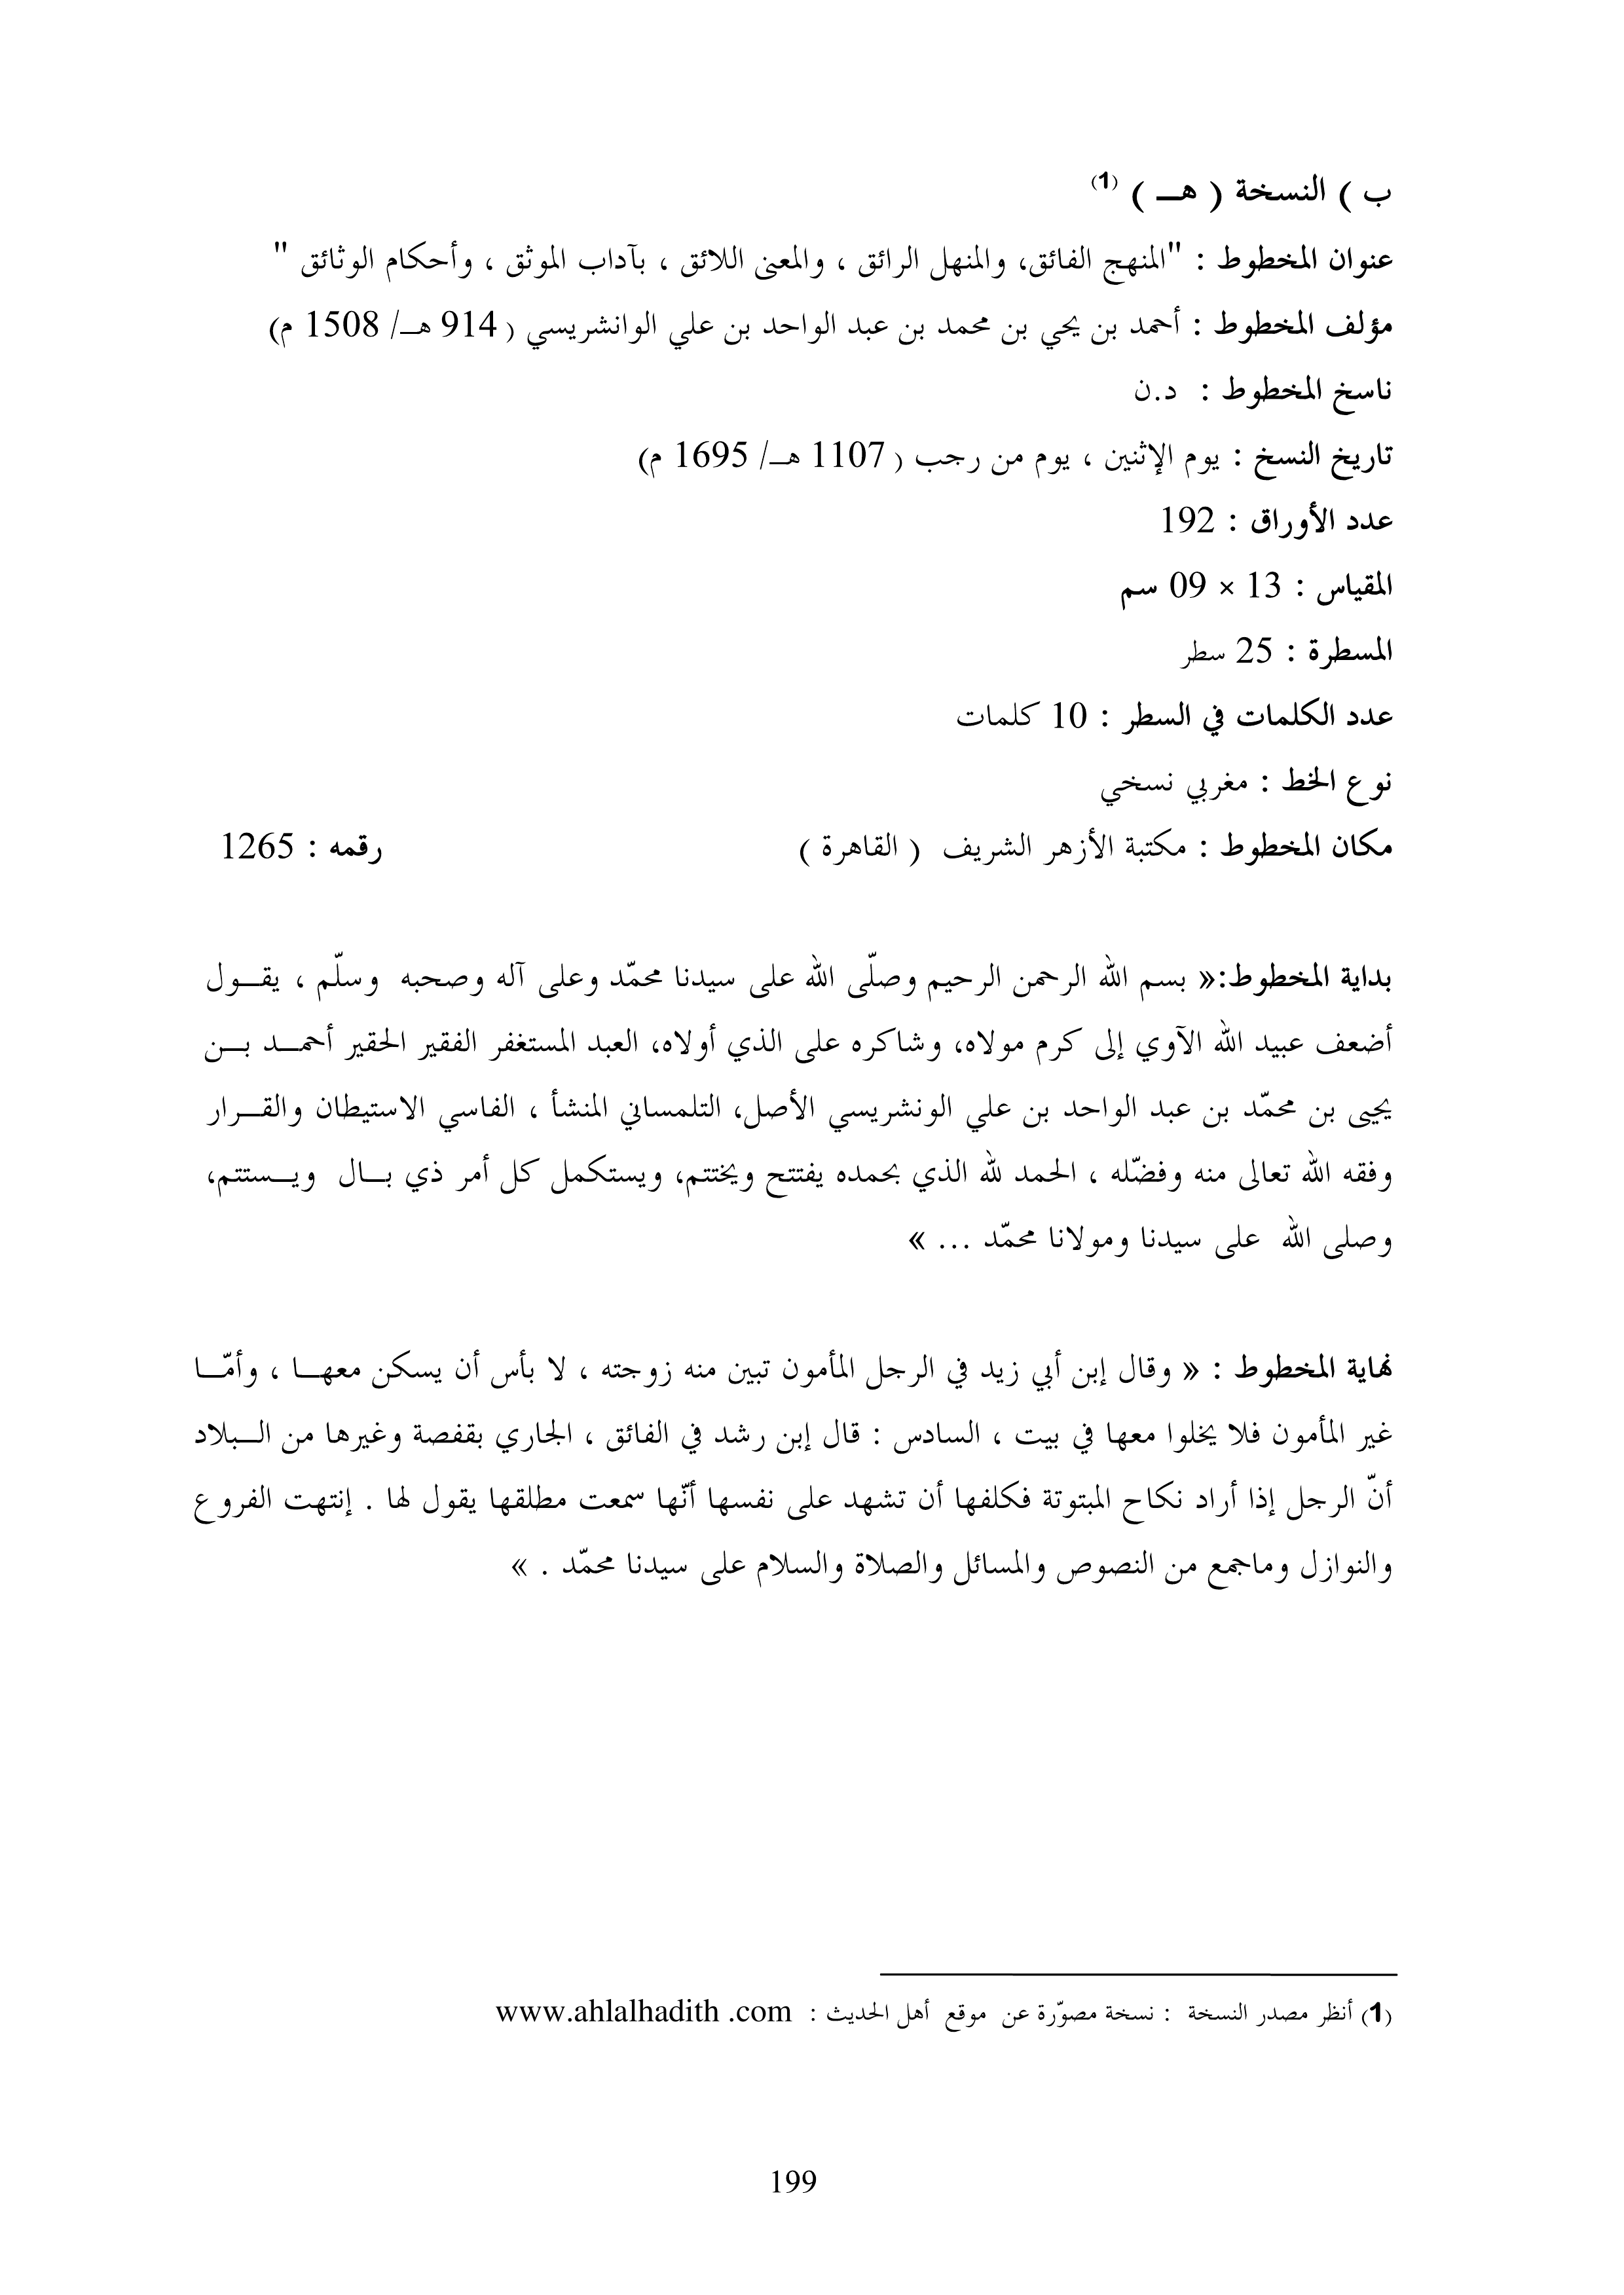 ب ) النسخة ( هـ ) (1)
عنوان المخطوط : "المنهج الفائق، والمنهل الرائق ، والمعنى اللائق ، بآداب الموثق ، وأحكام الوثائق "
مؤلف المخطوط : أحمد بن يحي بن محمد بن عبد الواحد بن علي الوانشريسي ( 914 هـ/ 1508 م)
ناسخ المخطوط : د.ن
تاريخ النسخ : يوم الإثنين ، يوم من رجب ( 1107 هـ/ 1695 م)
عدد الأوراق : 192
المقياس : 13 × 09 سم
المسطرة : 25 سطر
عدد الكلمات في السطر : 10 كلمات
نوع الخط : مغربي نسخي
مكان المخطوط : مكتبة الأزهر الشريف ( القاهرة ) رقمه : 1265
بداية المخطوط:« بسم الله الرحمن الرحيم وصلّى الله على سيدنا محمّد وعلى آله وصحبه وسلّم ، يقـول
أضعف عبيد الله الآوي إلى كرم مولاه، وشاكره على الذي أولاه، العبد المستغفر الفقير الحقير أحمـد بـن
يحيى بن محمّد بن عبد الواحد بن علي الونشريسي الأصل، التلمساني المنشأ ، الفاسي الاستيطان والقـرار
وفقه الله تعالى منه وفضّله ، الحمد لله الذي بحمده يفتتح ويختتم، ويستكمل كل أمر ذي بـال ويـستتم،
وصلى الله على سيدنا ومولانا محمّد ... »
نهاية المخطوط : « وقال إبن أبي زيد في الرجل المأمون تبين منه زوجته ، لا بأس أن يسكن معهـا ، وأمّـا
غير المأمون فلا يخلوا معها في بيت ، السادس : قال إبن رشد في الفائق ، الجاري بقفصة وغيرها من الـبلاد
أنّ الرجل إذا أراد نكاح المبتوتة فكلفها أن تشهد على نفسها أنّها سمعت مطلقها يقول لها . إنتهت الفروع
والنوازل وماجمع من النصوص والمسائل والصلاة والسلام على سيدنا محمّد . »
(1) أنظر مصدر النسخة : نسخة مصوّرة عن موقع أهل الحديث : www.ahlalhadith .com
199